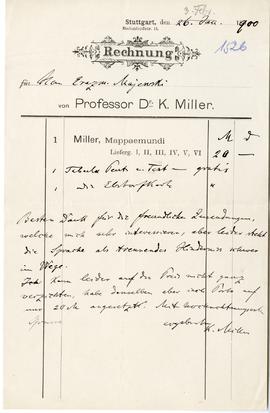 3. Febr.
Stuttgart, den 26 Jan. 1900
1526
Rechnung
für Herrn Erazm. Majewski
von Professor Dr. K. Miller.
M d
1 Miller, Mappaemundi
Lieferg. I, II, III, IV, V, VI 20 —
1 Tabula Peut. u. Text — gratis
1 die Ebstorfkarte "
Besten Dank für die freundliche Zusendungen,
welche mich sehr interessieren, aber leider steht
die Sprache als trennendes Hindernis schwer
im Wege.
Ich kann leider auf die Preis nicht ganz
verzichten, habe denselben aber inch Porto auf
nur 20 M angesetzt. Mit hochachtungsvoll
ergebenster
K. Miller